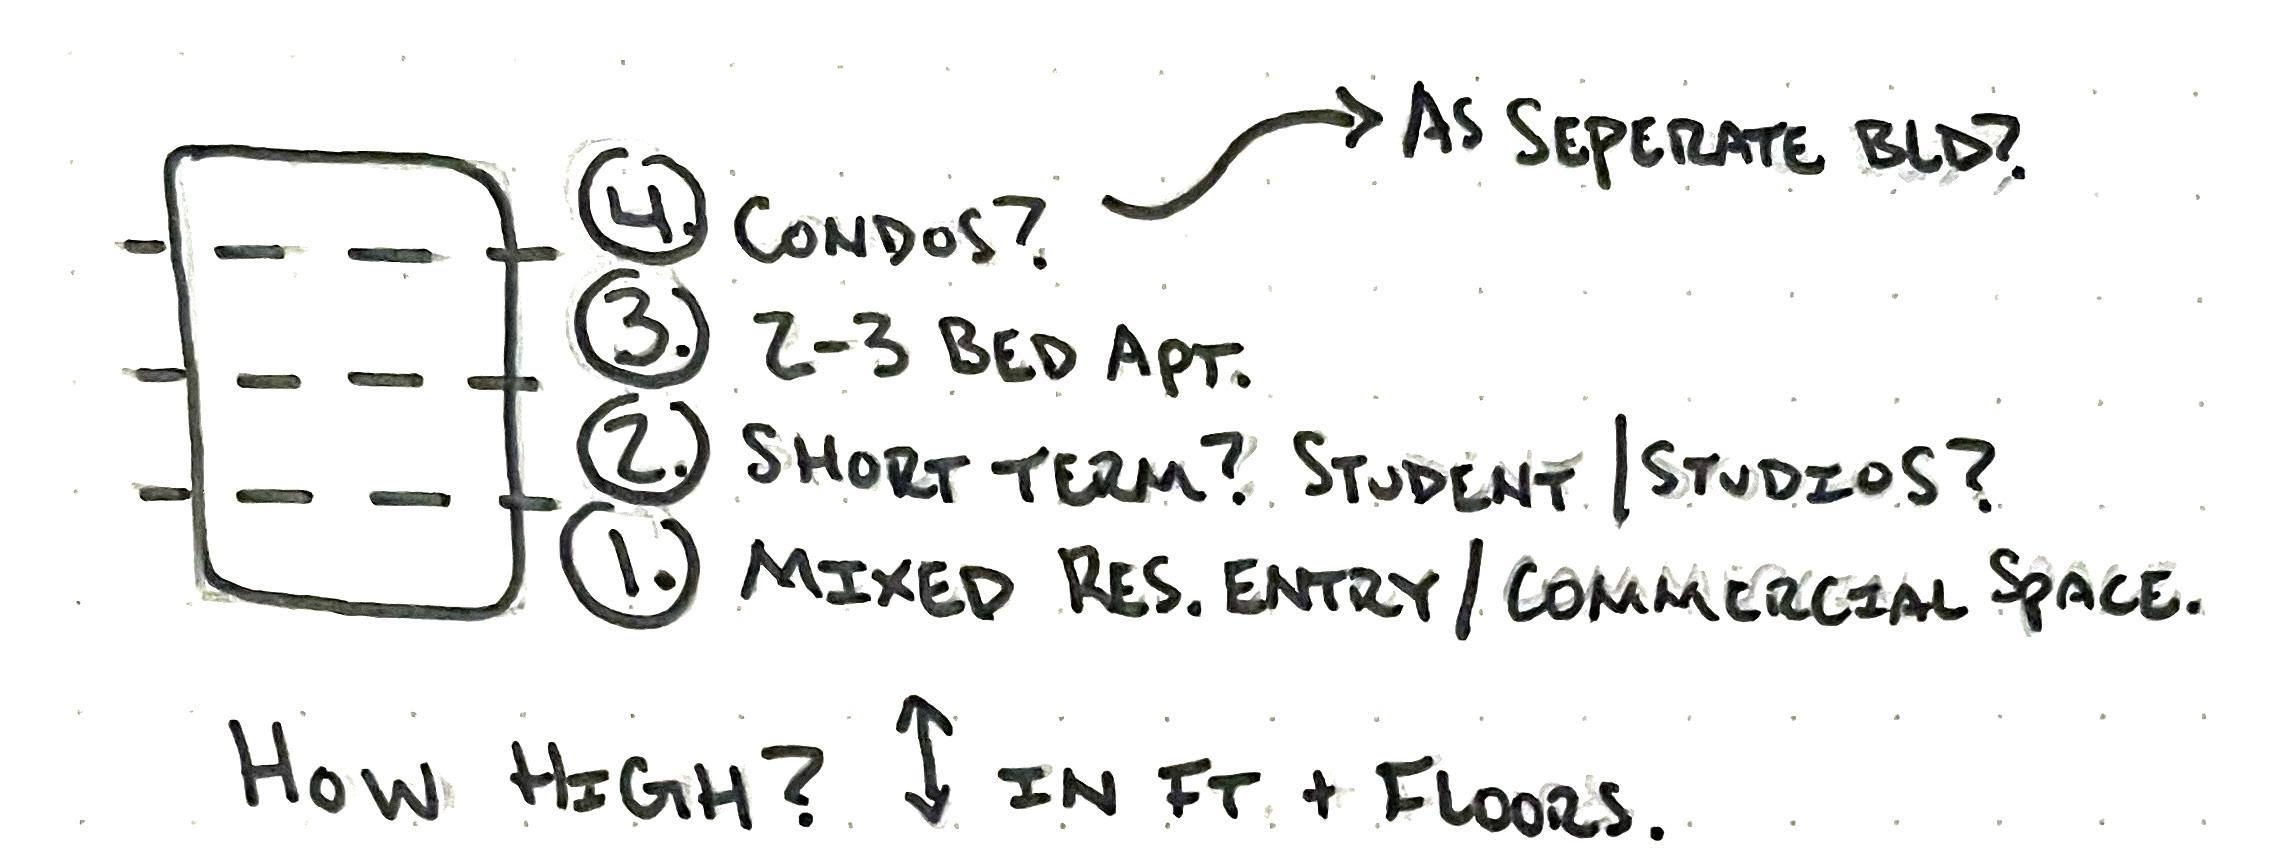 As Seperate Bld?
4. Condos?
3. 2-3 Bed Apt.
2. Short Term? Student | Studios?
1. Mixed Res. Entry / Commercial Space.
How High? ↕ in Ft + Floors.